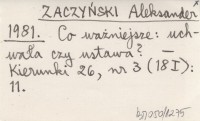 ZACZYŃSKI Aleksander
1981. Co ważniejsze: uch-
wała czy ustawa? –
Kierunki 26, nr 3 (18 I):
11.